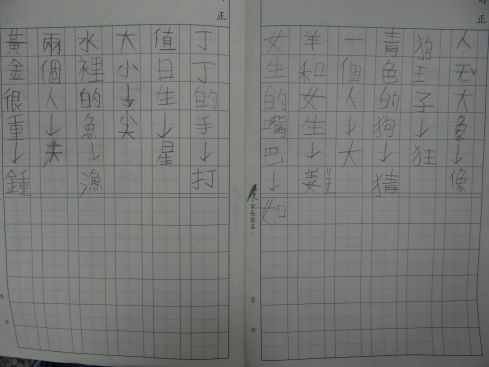 人大象↓像
狗王子↓狂
青色的狗↓猜
一個人↓大
羊和女生↓姜
女生的嘴巴↓如
家長簽名：
月 日
丁丁的手↓打
值日生↓星
大小↓尖
水裡的魚↓漁
兩個人↓夫
黃金很重↓鍾
正
正